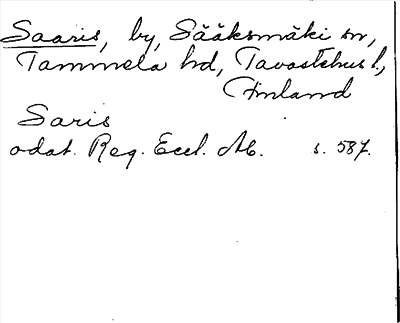 Saaris, by, Sääksmäki sn,
Tammela hd, Tavastehus l.,
Finland
Saris
odat. Reg. Eccl. Ab. s. 587.